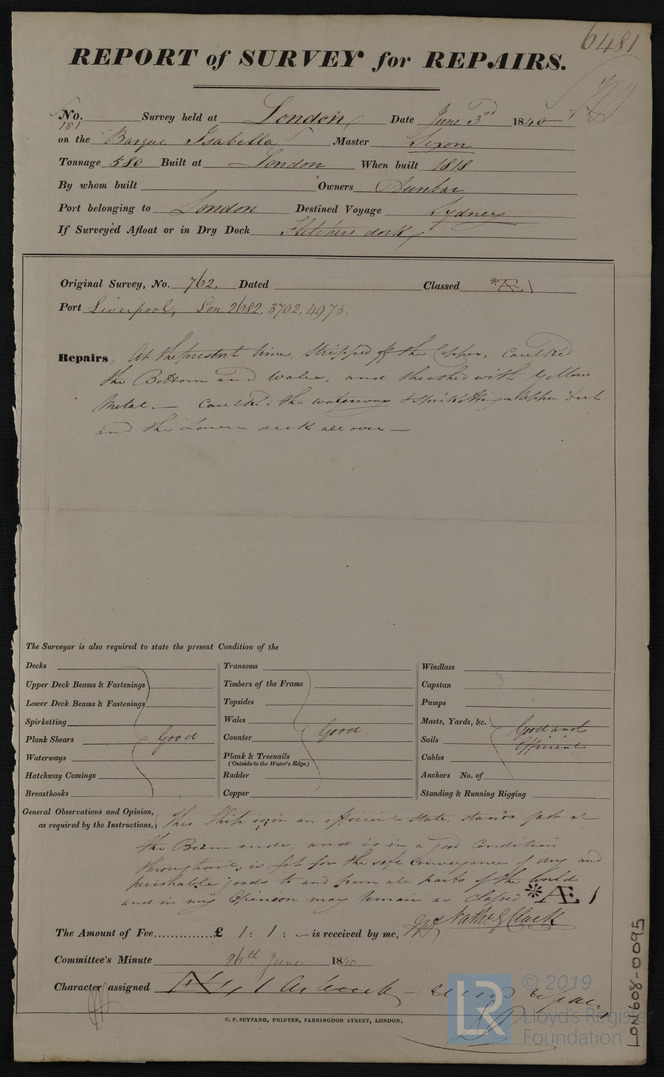 6481
REPORT of SURVEY for REPAIRS.
No. 181 Survey held at London Date June 3rd 1840
on the Barque Isabella Master
Tonnage 580 Built at London When built 1818
By whom built Owners Dunbar
Port belonging to London Destined Voyage Sydney
If Surveyed Afloat or in Dry Dock Fletchers dock
Original Survey, No. 762. Dated Classed *Æ.1
Port Liverpool, Lon 2682, 3702, 4975.
Repairs. At the present time, stripped off the Copper, Caulked
the Bottom and wales, and sheathed with Yellow
Metal — Caulked the waterways & Spirketting upper Deck
and the Lower deck all over —
The Surveyor is also required to state the present Condition of the
Decks Transoms Windlass
Upper Deck Beams & Fastenings Timbers of the Frame Capstan
Lower Deck Beams & Fastenings Topsides Pumps
Spirketting Wales Masts, Yards, &c. Good and
Plank Shears Good Counter Good Sails Efficient
Waterways Plank & Treenails (Outside to the Water's Edge) Cables
Hatchway Comings Rudder Anchors No. of
Breasthooks Copper Standing & Running Rigging
General Observations and Opinion, This Ship is in an efficient State, stands fast at
as required by the Instructions,
the Beam ends, and is in a good Condition
throughout, is fit for the safe Conveyance of dry and
perishable goods to and from all parts of the World
and in my Opinion may remain as Classed *Æ 1
The Amount of Fee............... £ 1 : 1 : — is received by me, Clark
Committee's Minute 26th June 1840
Character assigned
C. F. SEYFANG, PRINTER, FARRINGDON STREET, LONDON,
LON608-0095
LR
© 2019
Lloyd's Register
Foundation